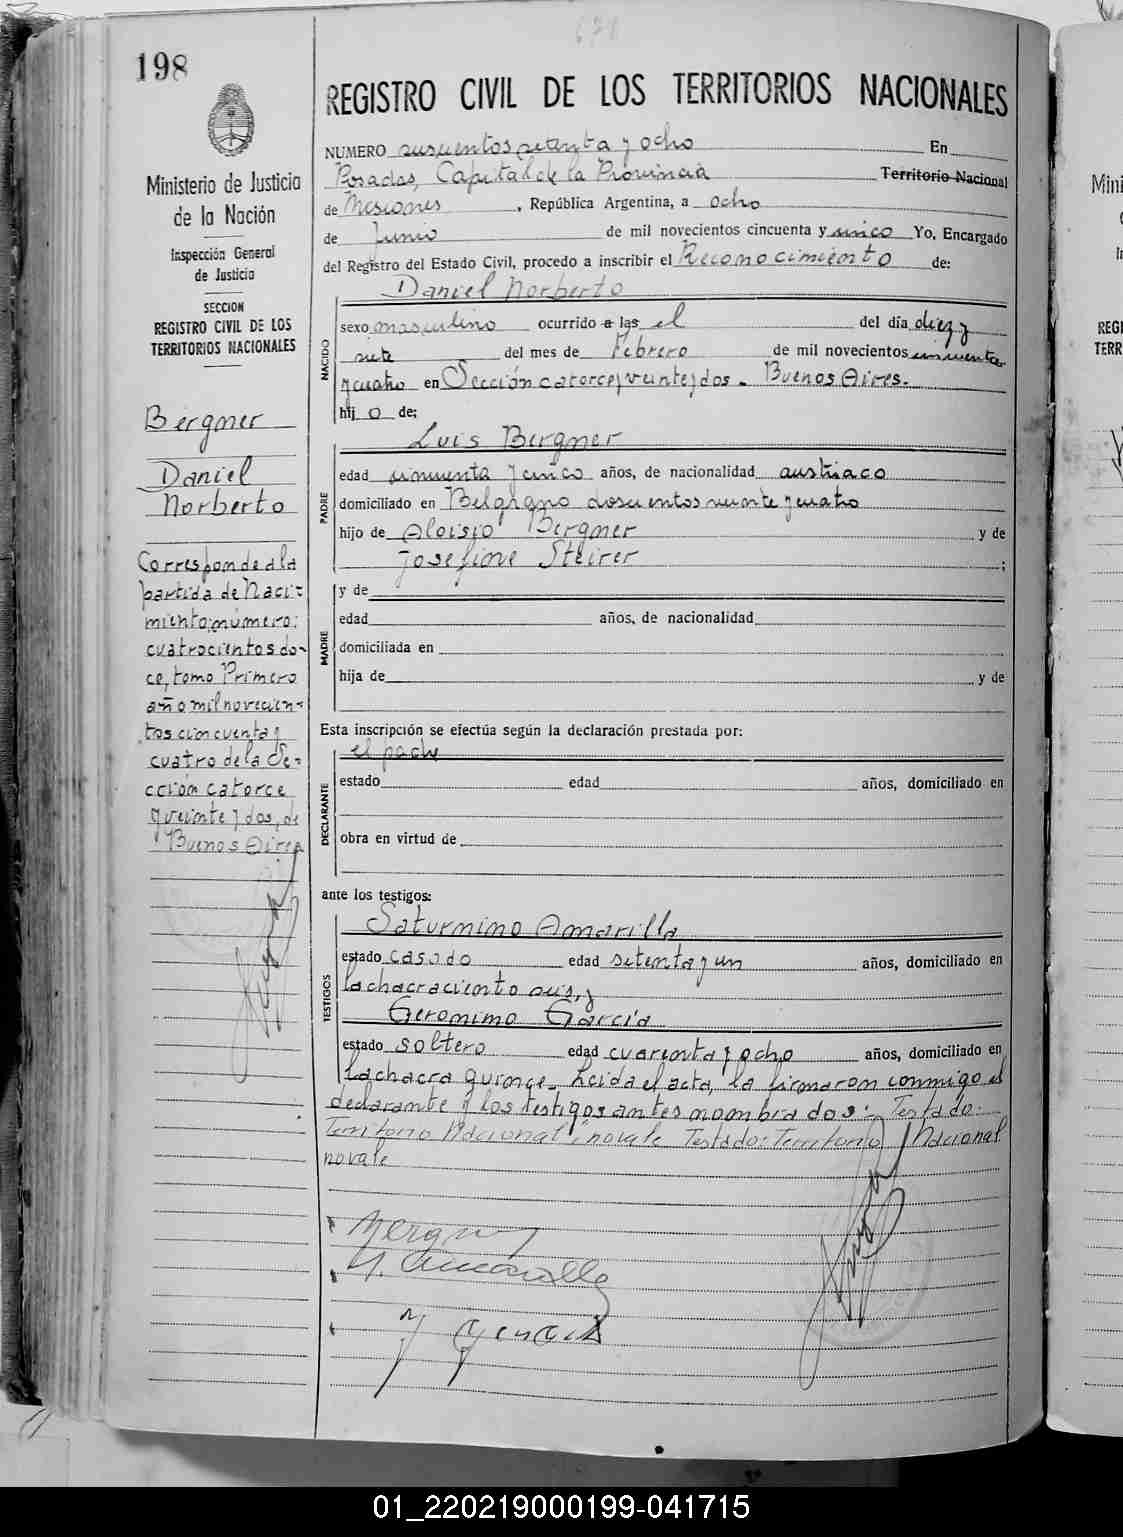 678
198
Ministerio de Justicia
de la Nación
Inspección General
de Justicia
SECCION
REGISTRO CIVIL DE LOS
TERRITORIOS NACIONALES
Bergner
Daniel
Norberto
Corresponde a la
partida de Naci-
miento, número:
cuatrocientos do-
ce, tomo Primero
año mil novecien-
tos cincuenta y
cuatro de la Se-
cción catorce
y veinte y dos, de
Buenos Aires
REGISTRO CIVIL DE LOS TERRITORIOS NACIONALES
NUMERO seiscientos setenta y ocho En
Posadas, Capital de la Provincia Territorio Nacional
de Misiones, República Argentina, a ocho
de Junio de mil novecientos cincuenta y cinco Yo, Encargado
del Registro del Estado Civil, procedo a inscribir el Reconocimiento de:
Daniel Norberto
NACIDO
sexo masculino ocurrido a las el del día diez y
siete del mes de Febrero de mil novecientos cincuenta
y cuatro en Sección catorce y veinte y dos - Buenos Aires.
hij o de:
PADRE
Luis Bergner
edad cincuenta y cinco años, de nacionalidad austriaco
domiciliado en Belgrano doscientos veinte y cuatro
hijo de Aloisio Bergner y de
Josefine Steirer ;
MADRE
y de
edad años, de nacionalidad
domiciliada en
hija de y de
Esta inscripción se efectúa según la declaración prestada por:
DECLARANTE
el padre
estado edad años, domiciliado en
obra en virtud de
ante los testigos:
TESTIGOS
Saturnino Amarilla
estado casado edad setenta y un años, domiciliado en
la chacra ciento seis, y
Geronimo Garcia
estado soltero edad cuarenta y ocho años, domiciliado en
la chacra quince - Leida el acta, la firmaron conmigo el
declarante y los testigos antes nombrados:- Testado:
Territorio Nacional: no vale Testado: Territorio Nacional
no vale
Bergner
S. Amarilla
J Garcia
Mini
REGI
TERR
01_220219000199-041715